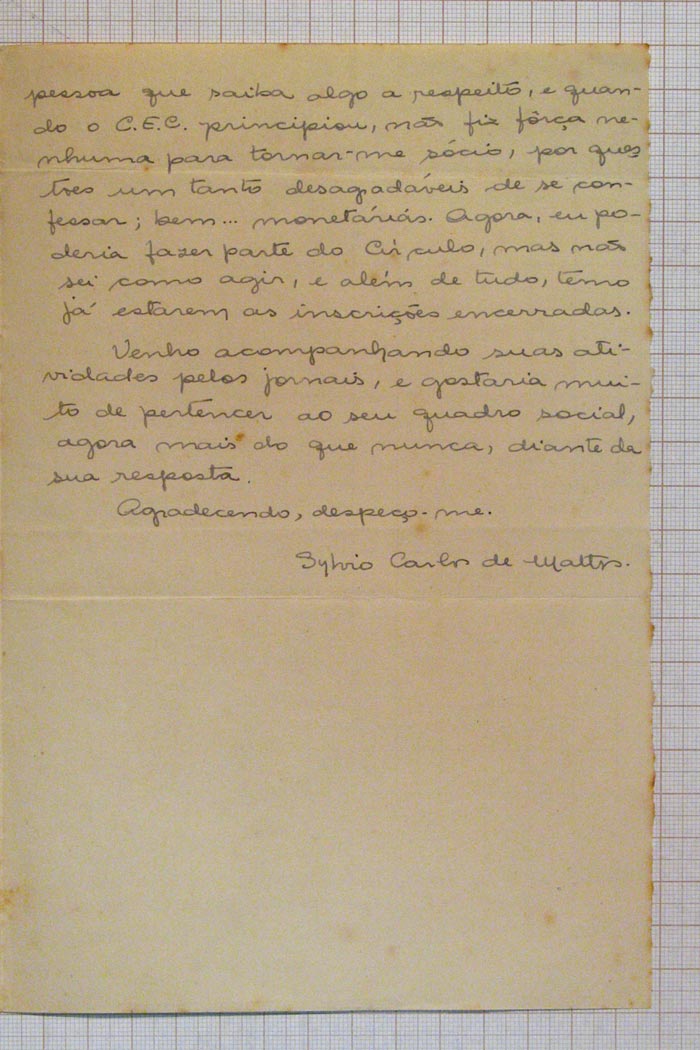 pessoa que saiba algo a respeito, e quan-
do o C.E.C. principiou, não fiz fôrça ne-
nhuma para tornar-me sócio, por ques
tões um tanto desagadáveis de se con-
fessar; bem... monetárias. Agora, eu po-
deria fazer parte do Círculo, mas não
sei como agir, e além de tudo, temo
já estarem as inscrições encerradas.
Venho acompanhando suas ati-
vidades pelos jornais, e gostaria mui-
to de pertencer ao seu quadro social,
agora mais do que nunca, diante da
sua resposta.
Agradecendo, despeço-me.
Sylvio Carlos de Mattos.